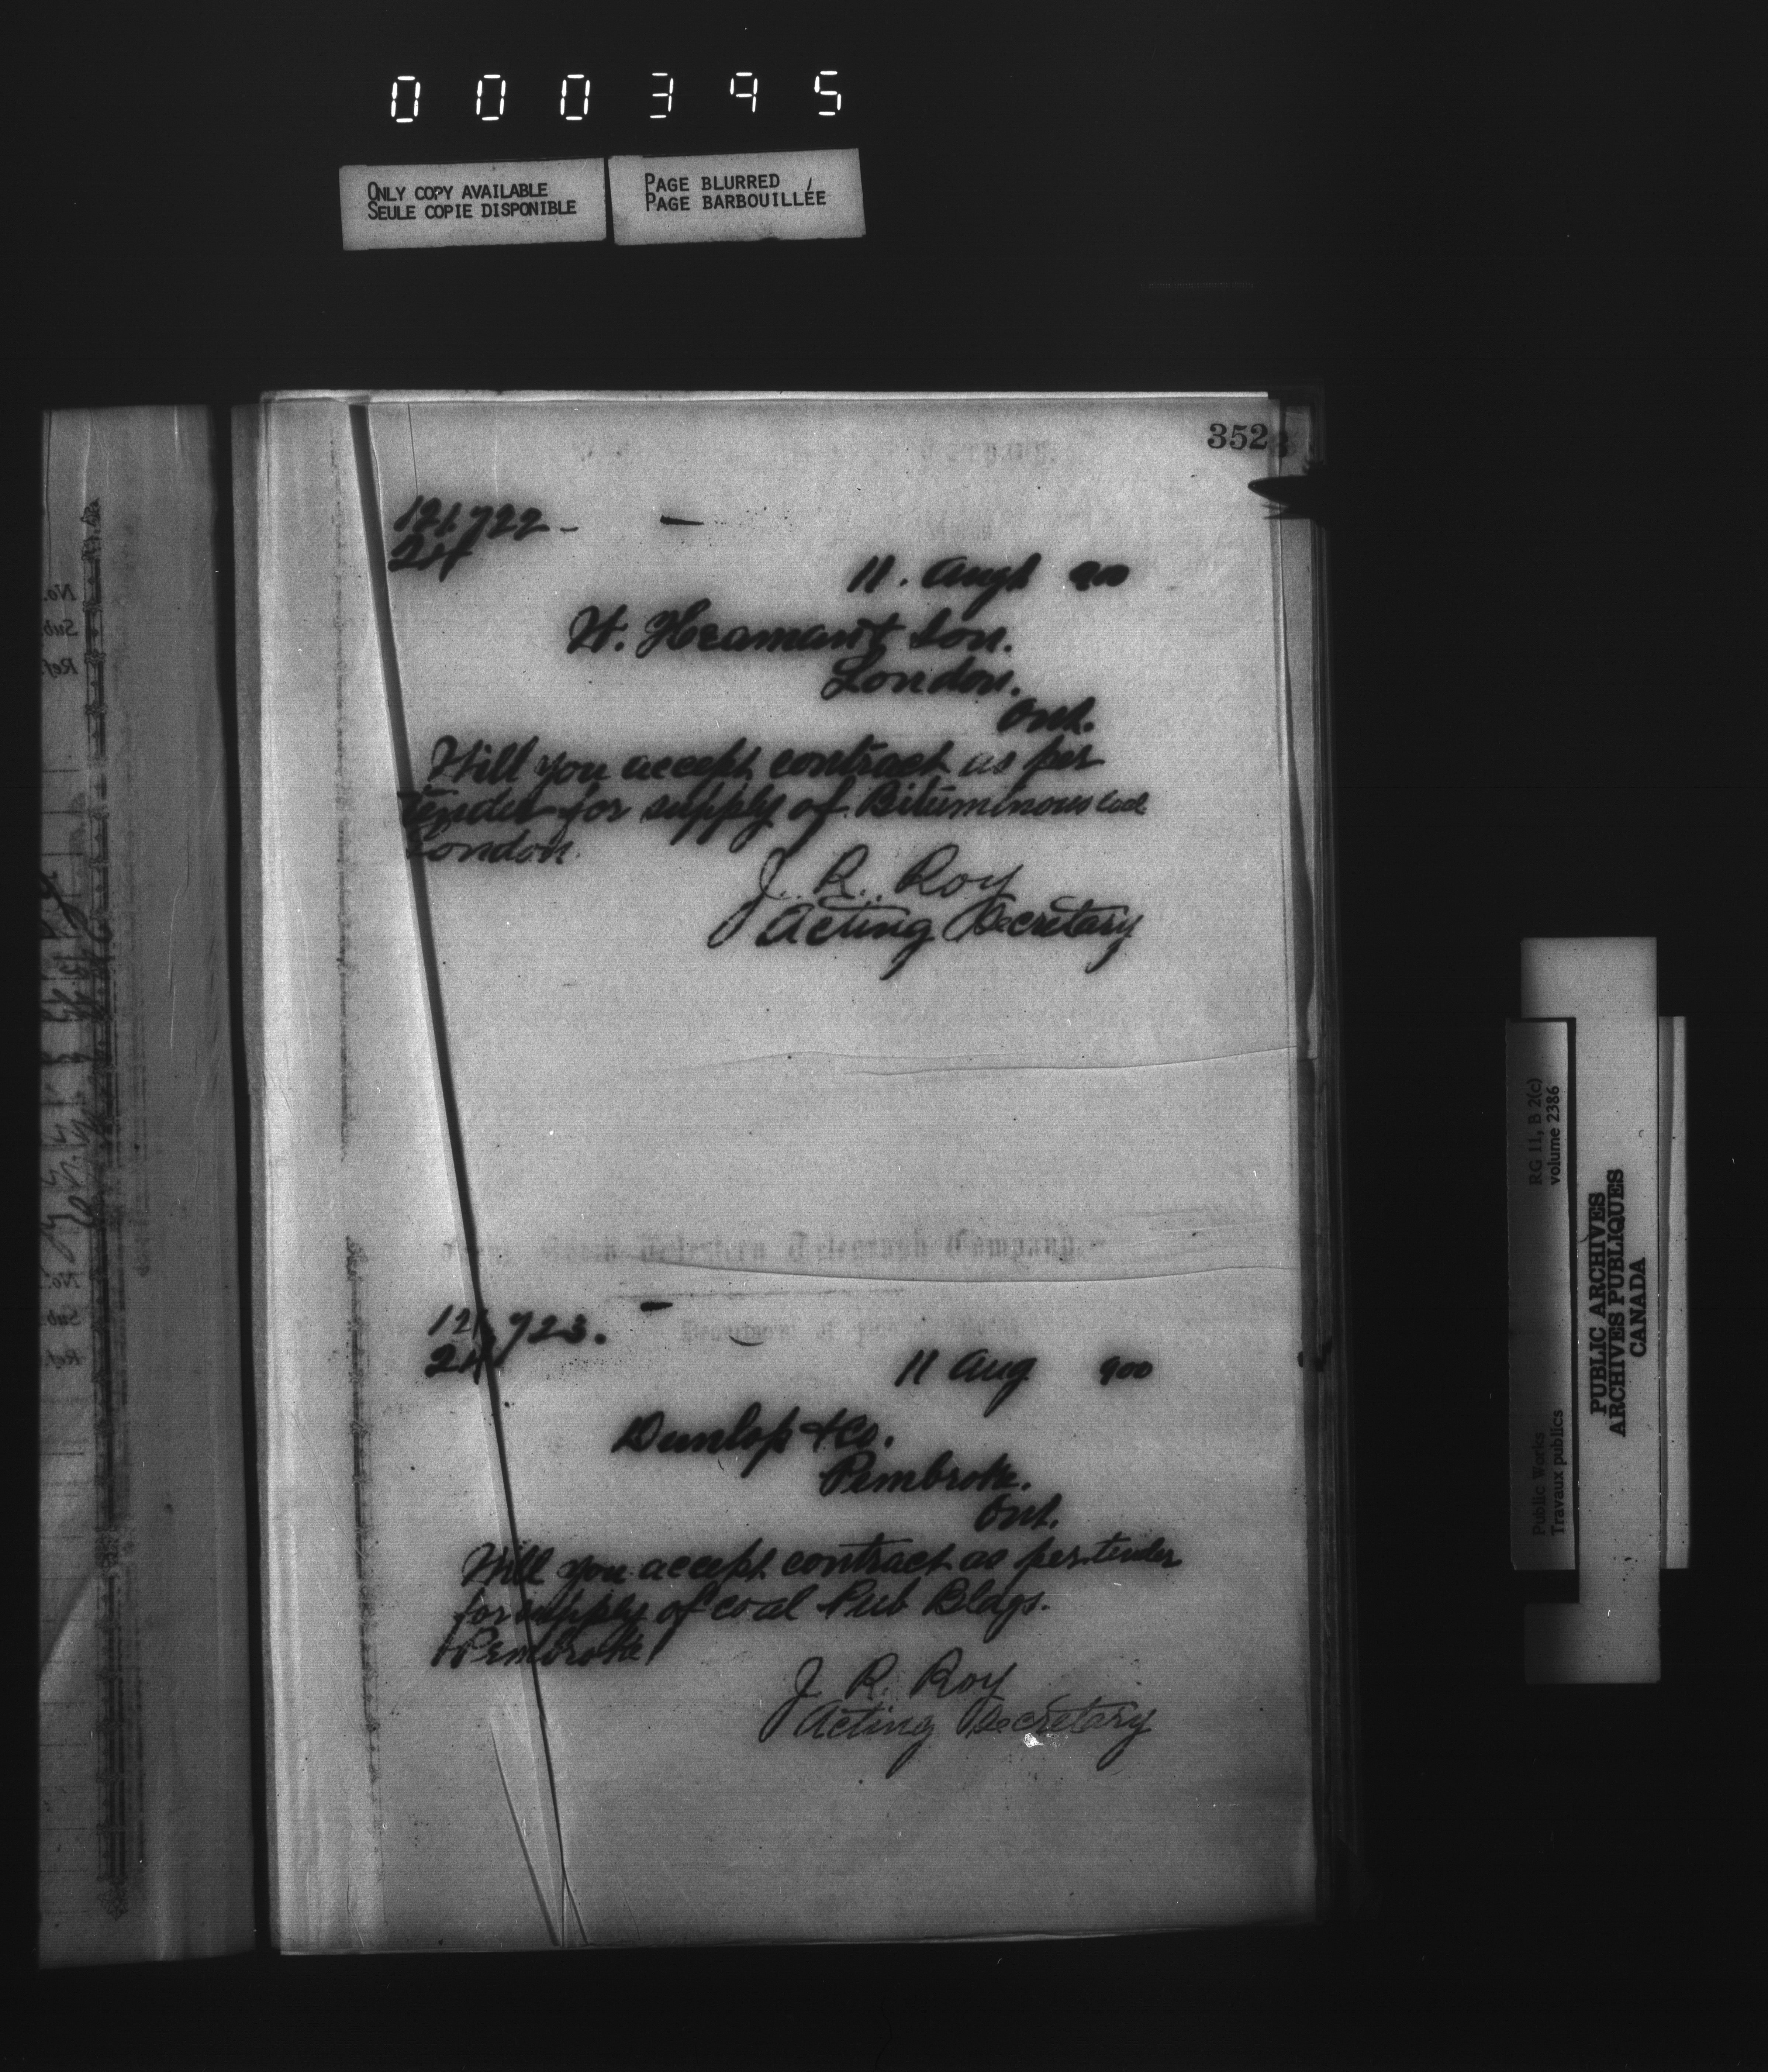 000395
ONLY COPY AVAILABLE
SEULE COPIE DISPONIBLE
PAGE BLURRED
PAGE BARBOUILLÉE
352
121,722 -
24
11. Augt 900
& Son.
London.
Ont.
Will you accept contract as per
tender for supply of Bituminous coal
London.
J. R. Roy
Acting Secretary
North Western Telegraph Company.
Department of Public Works
121,723.
24
11 Aug 900
Dunlop & Co.
Pembroke.
Ont.
Will you accept contract as per tender
for supply of coal Pub Bldgs.
Pembroke
J. R. Roy
Acting Secretary
RG 11, B 2(c)
volume 2386
Public Works
Travaux publics
PUBLIC ARCHIVES
ARCHIVES PUBLIQUES
CANADA
No.
Sub.
Ref.
No.
Sub.
Ref.